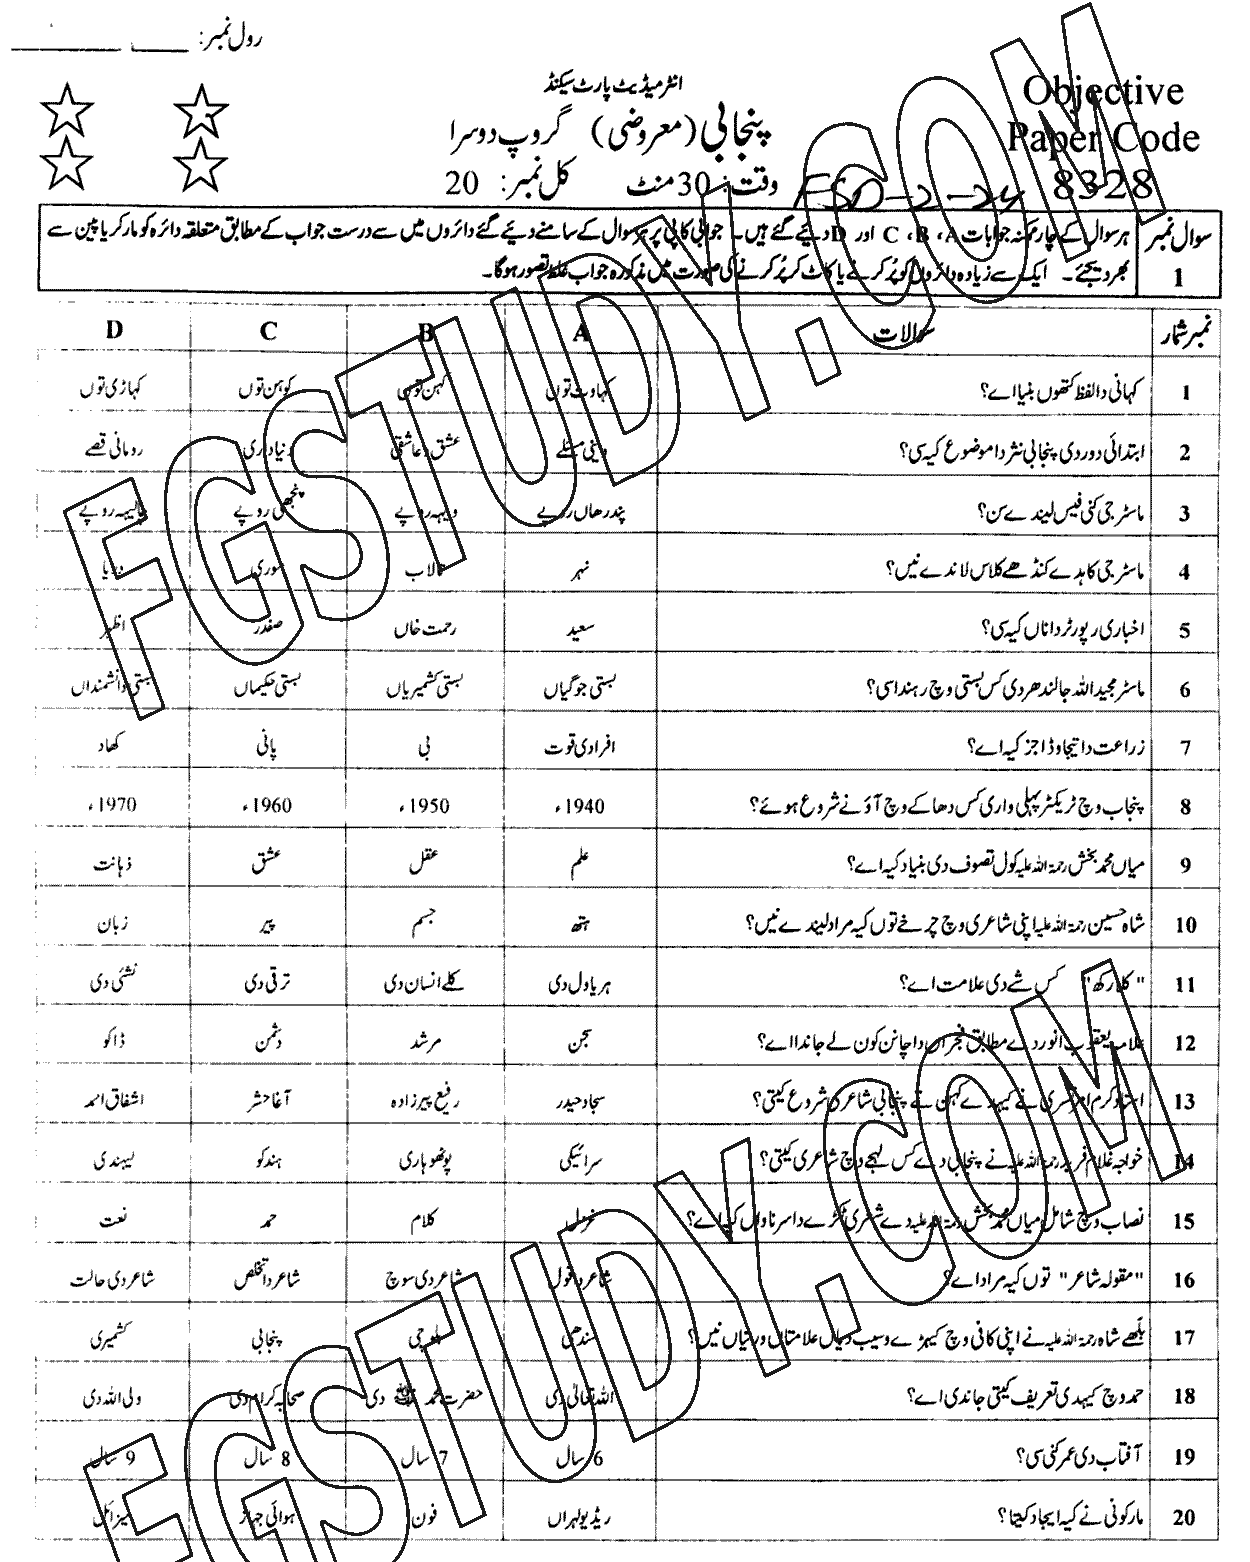 رول نمبر:
انٹرمیڈیٹ پارٹ سیکنڈ
Objective
پنجابی (معروضی) گروپ دوسرا
Paper Code
وقت: 30 منٹ کل نمبر: 20
FSD-2-24
8328
سوال نمبر 1
ہر سوال کے چار ممکنہ جوابات A، B، C اور D دیئے گئے ہیں۔ جوابی کاپی پر ہر سوال کے سامنے دیئے گئے دائروں میں سے درست جواب کے مطابق متعلقہ دائرہ کو مارکر یا پین سے
بھر دیجئے۔ ایک سے زیادہ دائروں کو پُر کرنے یا کاٹ کر پُر کرنے کی صورت میں مذکورہ جواب غلط تصور ہوگا۔
نمبر شمار سوالات A B C D
1 کہانی دا لفظ کتھوں بنیا اے؟ کہاوت توں کہن توں کوہن توں کہاڑی توں
2 ابتدائی دور دی پنجابی نثر دا موضوع کیہ سی؟ دینی مسئلے عشق و عاشقی دنیا داری رومانی قصے
3 ماسٹر جی کنی فیس لیندے سن؟ پندرھاں روپے ویہہ روپے پنجھی روپے چالیہہ روپے
4 ماسٹر جی کاہدے کنڈھے کلاس لاندے نیں؟ نہر تالاب موری دریا
5 اخباری رپورٹر دا ناں کیہ سی؟ سعید رحمت خاں صفدر اظہر
6 ماسٹر مجید اللہ جالندھر دی کس بستی وچ رہندا سی؟ بستی جوگیاں بستی کشمیریاں بستی حکیماں بستی دانشمنداں
7 زراعت دا تیجا وڈا جز کیہ اے؟ افرادی قوت بی پانی کھاد
8 پنجاب وچ ٹریکٹر پہلی واری کس دھاکے وچ آؤنے شروع ہوئے؟ 1940ء 1950ء 1960ء 1970ء
9 میاں محمد بخش رحمۃ اللہ علیہ کول تصوف دی بنیاد کیہ اے؟ علم عقل عشق ذہانت
10 شاہ حسین رحمۃ اللہ علیہ اپنی شاعری وچ چرخے توں کیہ مراد لیندے نیں؟ ہتھ جسم پیر زبان
11 "کلا رکھ" کس شے دی علامت اے؟ ہریاول دی کلے انسان دی ترقی دی نشئی دی
12 غلام یعقوب انور دے مطابق فجراں دا چانن کون لے جاندا اے؟ سجن مرشد دشمن ڈاکو
13 استاد کرم امرتسری نے کیہدے کہن تے پنجابی شاعری شروع کیتی؟ سجاد حیدر رفیع پیرزادہ آغا حشر اشفاق احمد
14 خواجہ غلام فرید رحمۃ اللہ علیہ نے پنجابی دے کس لہجے وچ شاعری کیتی؟ سرائیکی پوٹھوہاری ہندکو لہندی
15 نصاب وچ شامل میاں محمد بخش رحمۃ اللہ علیہ دے شعری ٹکڑے دا سرناواں کیہ اے؟ غزل کلام حمد نعت
16 "مقولہ شاعر" توں کیہ مراد اے؟ شاعر دا قول شاعر دی سوچ شاعر دا تخلص شاعر دی حالت
17 بلّھے شاہ رحمۃ اللہ علیہ نے اپنی کافی وچ کیہڑے وسیب دیاں علامتاں ورتیاں نیں؟ سندھی بلوچی پنجابی کشمیری
18 حمد وچ کیہدی تعریف کیتی جاندی اے؟ اللہ تعالیٰ دی حضرت محمد ﷺ دی صحابہ کرام دی ولی اللہ دی
19 آفتاب دی عمر کنی سی؟ 6 سال 7 سال 8 سال 9 سال
20 مارکونی نے کیہ ایجاد کیتا؟ ریڈیو لہراں فون ہوائی جہاز میزائل
FGSTUDY.COM
FGSTUDY.COM